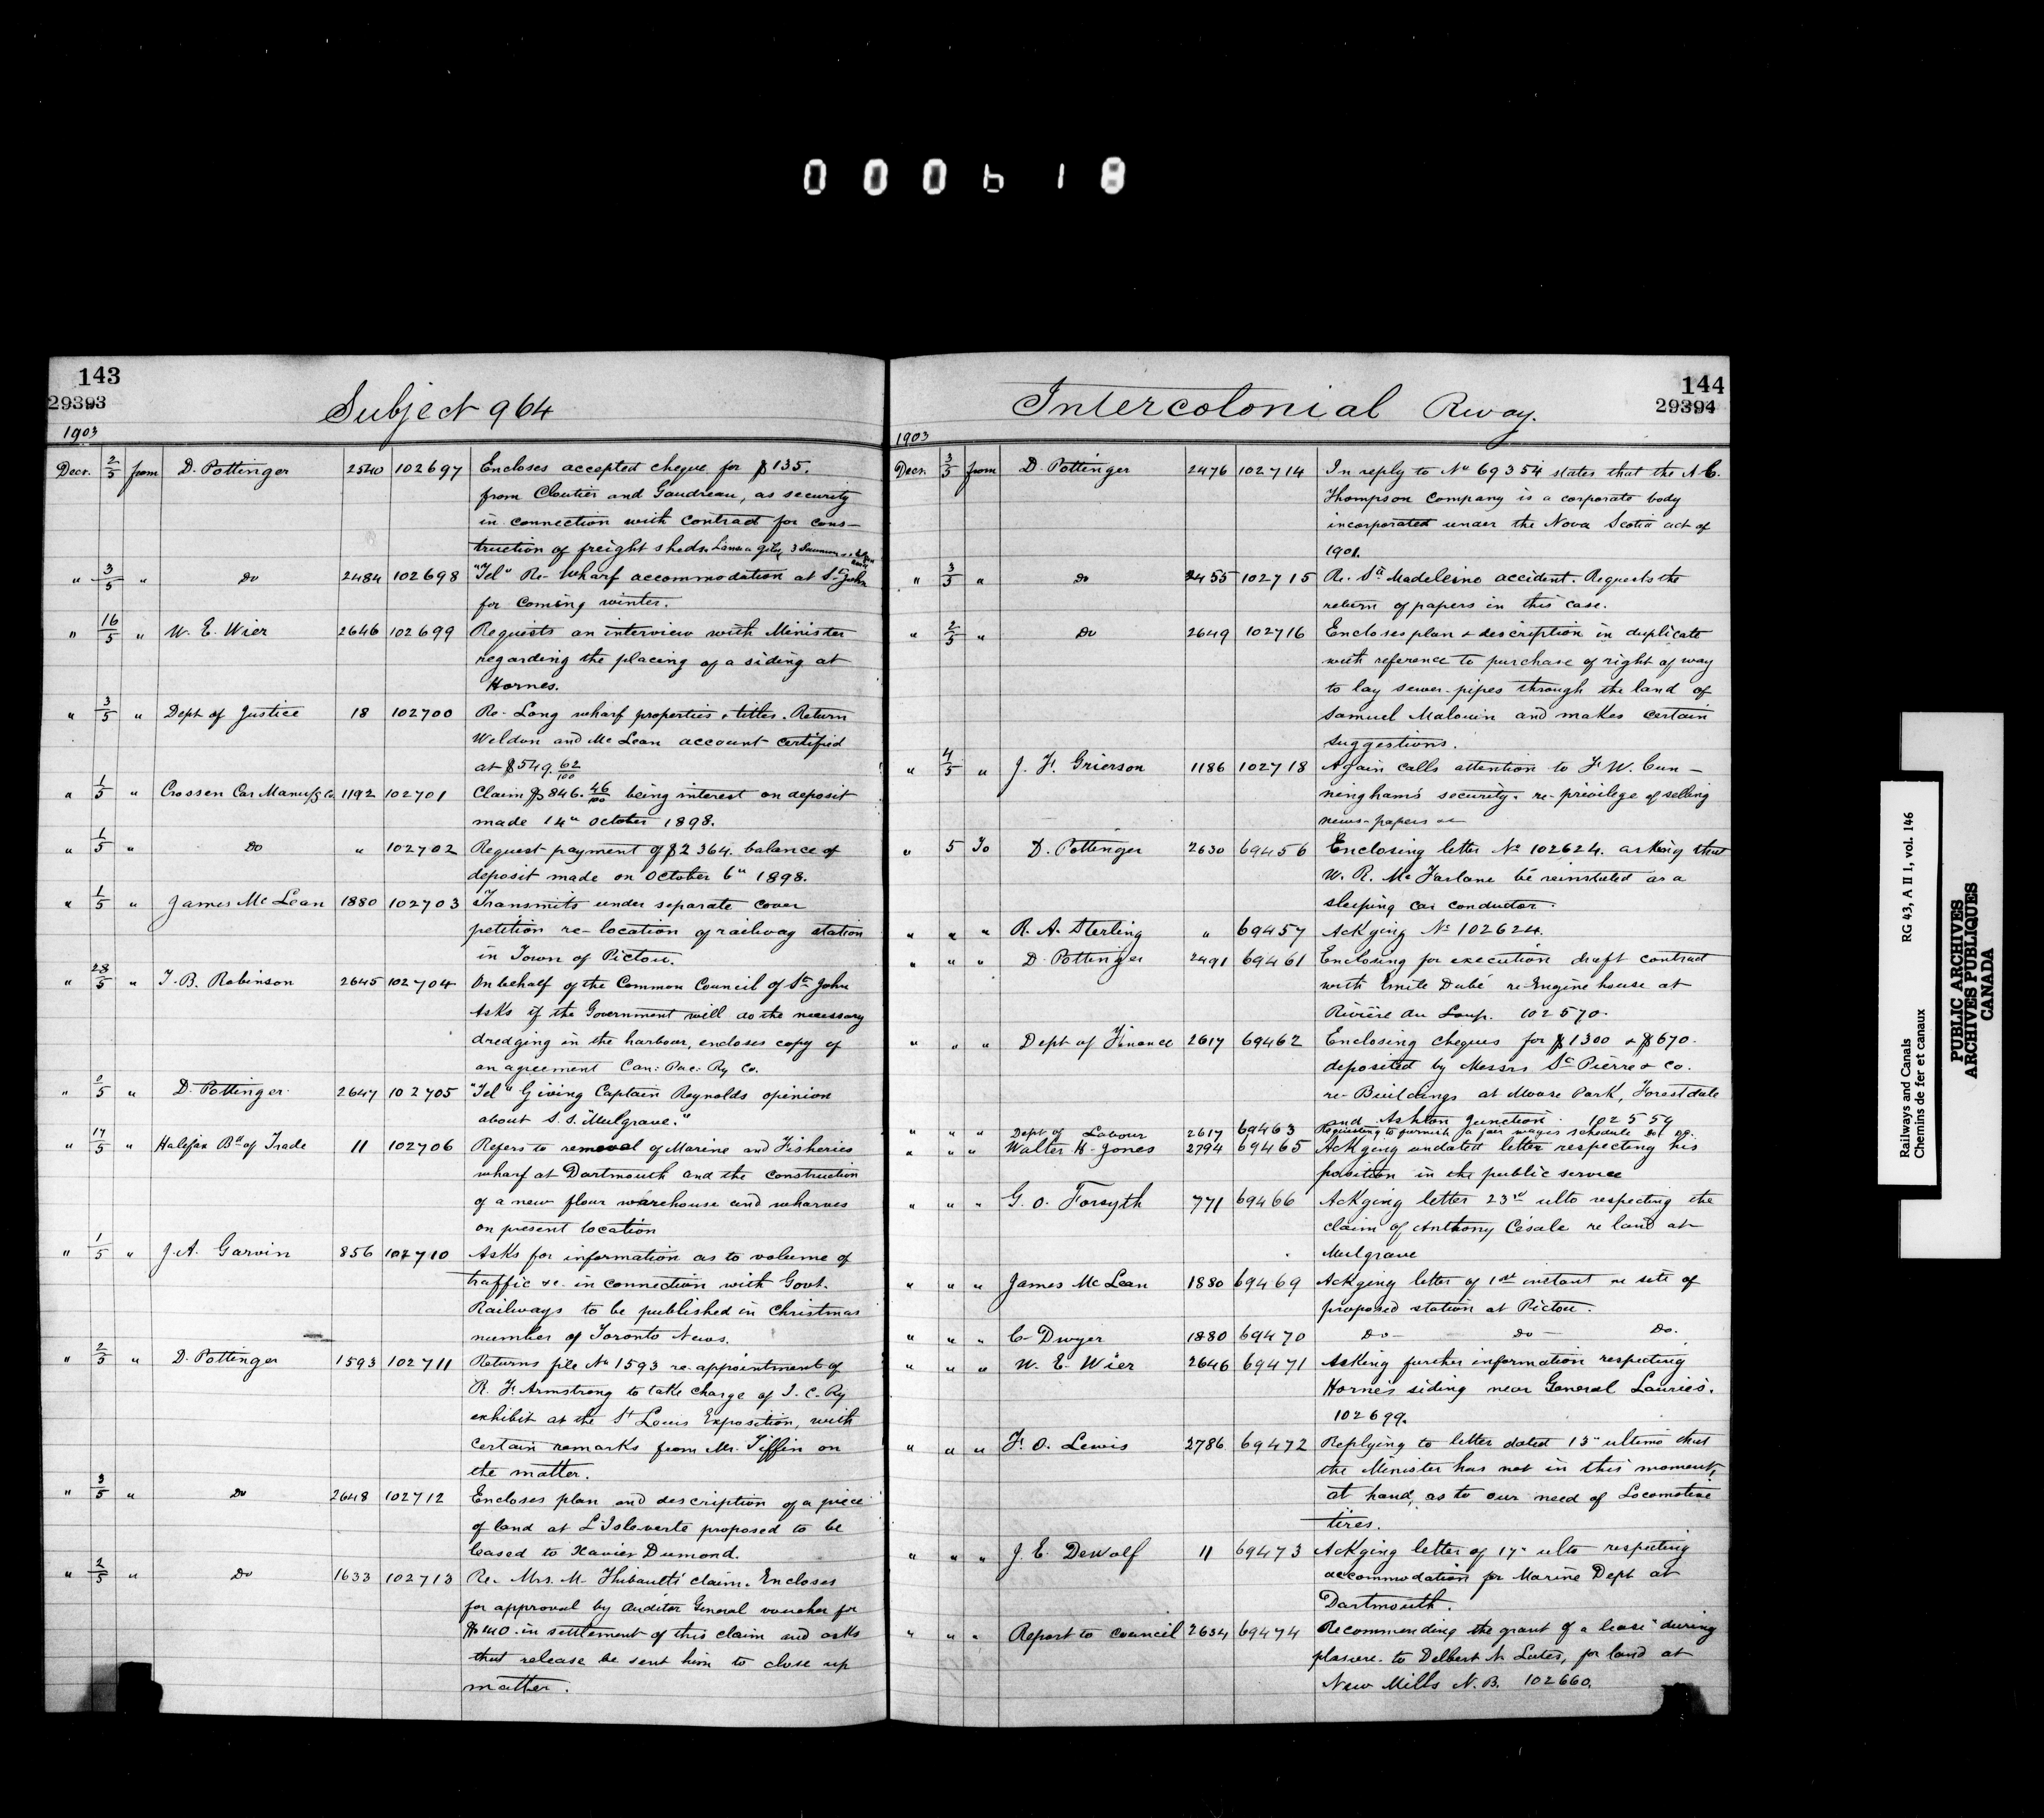 000618
143
29393
Subject 964
1903
Decr. 2/5 from D. Pottinger 2540 102697 Encloses accepted cheque for $135.
from Cloutier and Gaudreau, as security
in connection with contract for cons-
truction of freight sheds.
" 3/5 " Do 2484 102698 "Tel" Re- Wharf accommodation at St John
for coming winter.
" 16/5 " W. E. Wier 2646 102699 Requests an interview with Minister
regarding the placing of a siding at
Hornes.
" 3/5 " Dept of Justice 18 102700 Re- Long wharf properties & titles. Return
Weldon and McLean account certified
at $549.62/100
" 1/5 " Crossen Car Manufg Co 1192 102701 Claim $846.46/100 being interest on deposit
made 14" October 1898.
" 1/5 " Do " 102702 Request payment of $2364. balance of
deposit made on October 6" 1898.
" 1/5 " James McLean 1880 102703 Transmits under separate cover
petition re- location of railway station
in Town of Pictou.
" 28/5 " T. B. Robinson 2645 102704 On behalf of the Common Council of St John
Asks if the Government will do the necessary
dredging in the harbour, encloses copy of
an agreement Can: Pac: Ry Co.
" /5 " D. Pottinger 2647 102705 "Tel" Giving Captain Reynolds opinion
about S.S. "Mulgrave."
" 17/5 " Halifax Bd of Trade 11 102706 Refers to removal of Marine and Fisheries
wharf at Dartmouth and the construction
of a new flour warehouse and wharves
on present location
" 1/5 " J. A. Garvin 856 102710 Asks for information as to volume of
traffic &c. in connection with Govt.
Railways to be published in Christmas
number of Toronto News.
" 2/5 " D. Pottinger 1593 102711 Returns file No 1593 re- appointment of
R. F. Armstrong to take charge of I. C. Ry
exhibit at the St Louis Exposition, with
certain remarks from Mr. Tiffin on
the matter.
" 3/5 " Do 2648 102712 Encloses plan and description of a piece
of land at L'Isleverte proposed to be
leased to Xavier Dumond.
" 2/5 " Do 1633 102713 Re- Mrs. M. Thibault's claim. Encloses
for approval by Auditor General voucher for
in settlement of this claim and asks
that release be sent him to close up
matter.
144
29394
Intercolonial Rway.
1903
Decr. 3/5 from D. Pottinger 2476 102714 In reply to No 69354 states that the A. C.
Thompson Company is a corporate body
incorporated under the Nova Scotia act of
1901.
" 3/5 " Do 2455 102715 Re. Ste Madeleine accident. Requests the
return of papers in this case.
" 2/5 " Do 2649 102716 Encloses plan & description in duplicate
with reference to purchase of right of way
to lay sewer-pipes through the land of
Samuel Malouin and makes certain
suggestions.
" 4/5 " J. F. Grierson 1186 102718 Again calls attention to F. W. Cun-
ningham's security. re- privilege of selling
news-papers &c
" 5 To D. Pottinger 2630 69456 Enclosing letter No 102624. asking that
W. R. McFarlane be reinstated as a
sleeping car conductor.
" " " R. A. Sterling " 69457 Ackging No 102624.
" " " D. Pottinger 2491 69461 Enclosing for execution draft contract
with Emile Dubé re- Engine house at
Rivière du Loup. 102570.
" " " Dept of Finance 2617 69462 Enclosing cheques for $1300 & $670.
deposited by Messrs St Pierre & Co.
re- Buildings at Moose Park, Forestdale
and Ashton Junction. 102559
" " " Dept of Labour 2617 69463 Requesting to furnish a fair wages schedule do do.
" " " Walter H. Jones 2794 69465 Ackging undated letter respecting his
position in the public service
" " " G. O. Forsyth 771 69466 Ackging letter 23rd ulto respecting the
claim of Anthony Césale re land at
Mulgrave
" " " James McLean 1880 69469 Ackging letter of 1st instant re site of
proposed station at Pictou.
" " " C. Dwyer 1880 69470 Do- do- Do.
" " " W. E. Wier 2646 69471 Asking further information respecting
Horne's siding near General Laurie's.
102699.
" " " F. O. Lewis 2786 69472 Replying to letter dated 13" ultimo that
the Minister has not in this moment,
at hand, as to our need of Locomotive
tires.
" " " J. E. DeWolf 11 69473 Ackging letter of 17" ulto respecting
accommodation for Marine Dept at
Dartmouth.
" " " Report to Council 2634 69474 Recommending the grant of a lease "during
plasure. to Delbert N. Lutes, for land at
New Mills N.B. 102660.
Railways and Canals RG 43, A II 1, vol. 146
Chemins de fer et canaux
PUBLIC ARCHIVES
ARCHIVES PUBLIQUES
CANADA